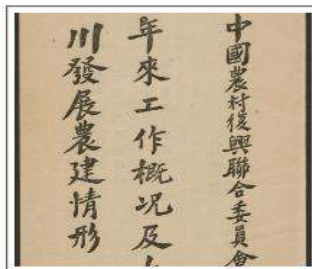 中國農村復興聯合委員會
年來工作概況及
川發展農建情形